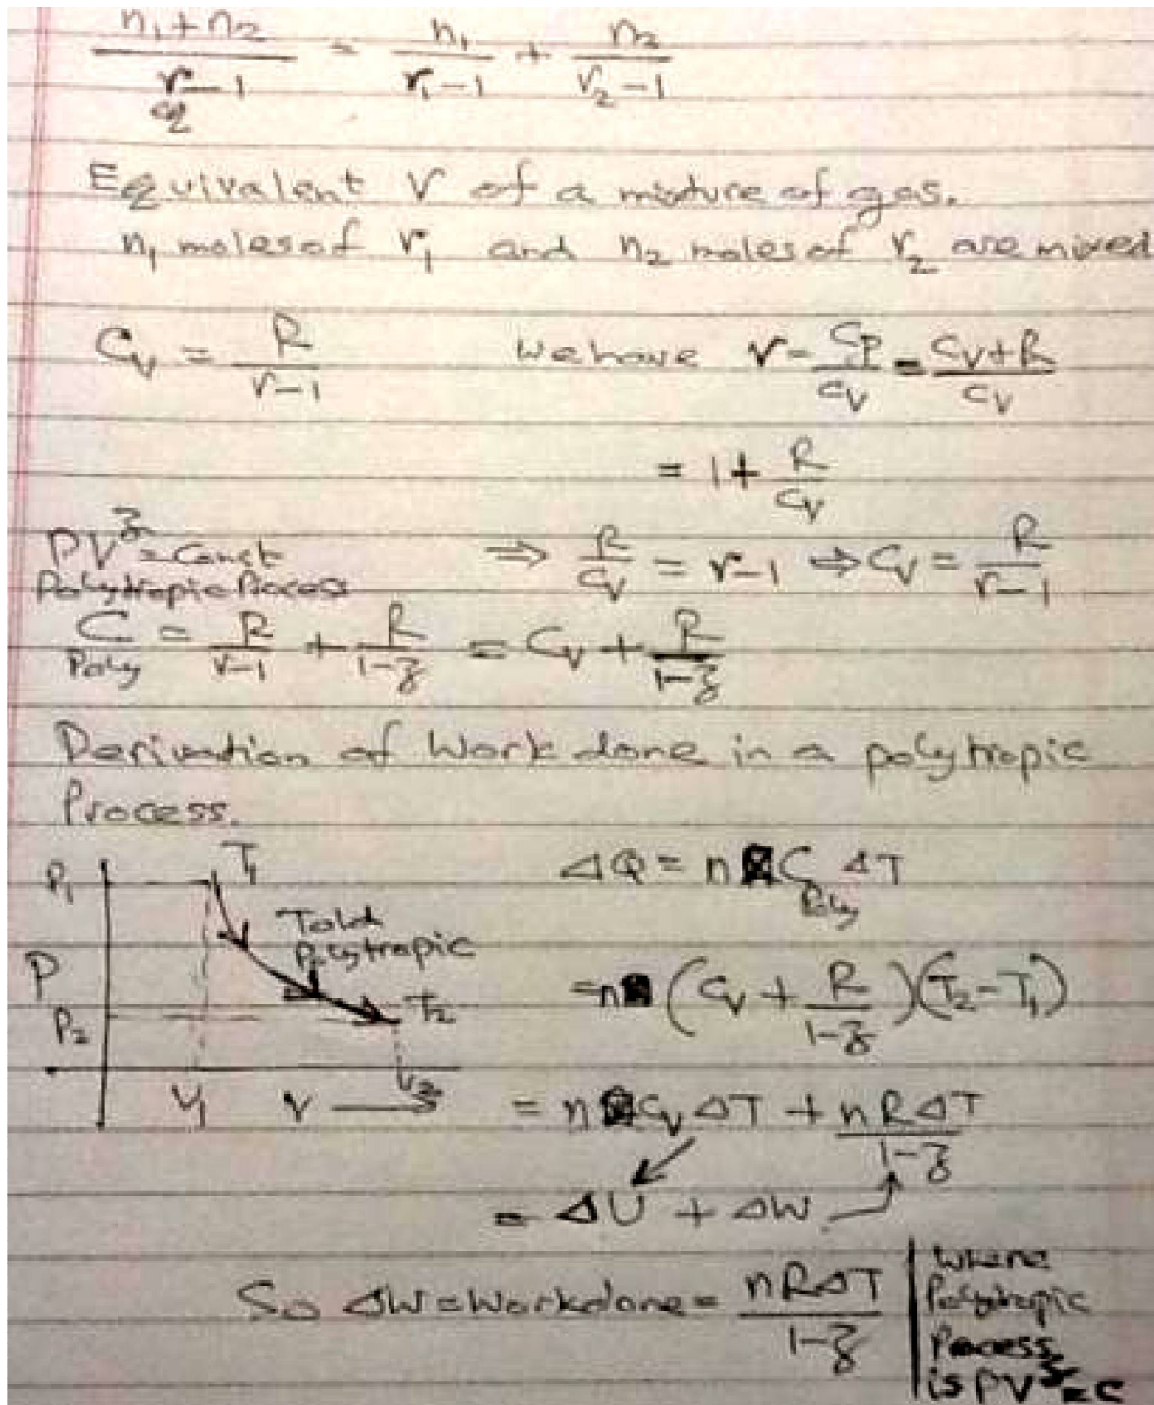 n₁+n₂ / r_eq − 1 = n₁ / r₁−1 + n₂ / r₂−1
Equivalent r of a mixture of gas.
n₁ moles of r₁ and n₂ moles of r₂ are mixed
C_V = R / r−1 We have r = C_P / C_V = C_V+R / C_V
= 1 + R / C_V
PV^z = Const ⇒ R / C_V = r−1 ⇒ C_V = R / r−1
Polytropic Process
C_Poly = R / r−1 + R / 1−z = C_V + R / 1−z
Derivation of Work done in a polytropic
Process.
P₁ T₁
Polytropic
P
P₂ T₂
V₁ V V₂
ΔQ = n C_Poly ΔT
= n (C_V + R / 1−z)(T₂−T₁)
= n C_V ΔT + nRΔT / 1−z
= ΔU + ΔW
So ΔW = Workdone = nRΔT / 1−z
Where
Polytropic
Process
is PV^z = C